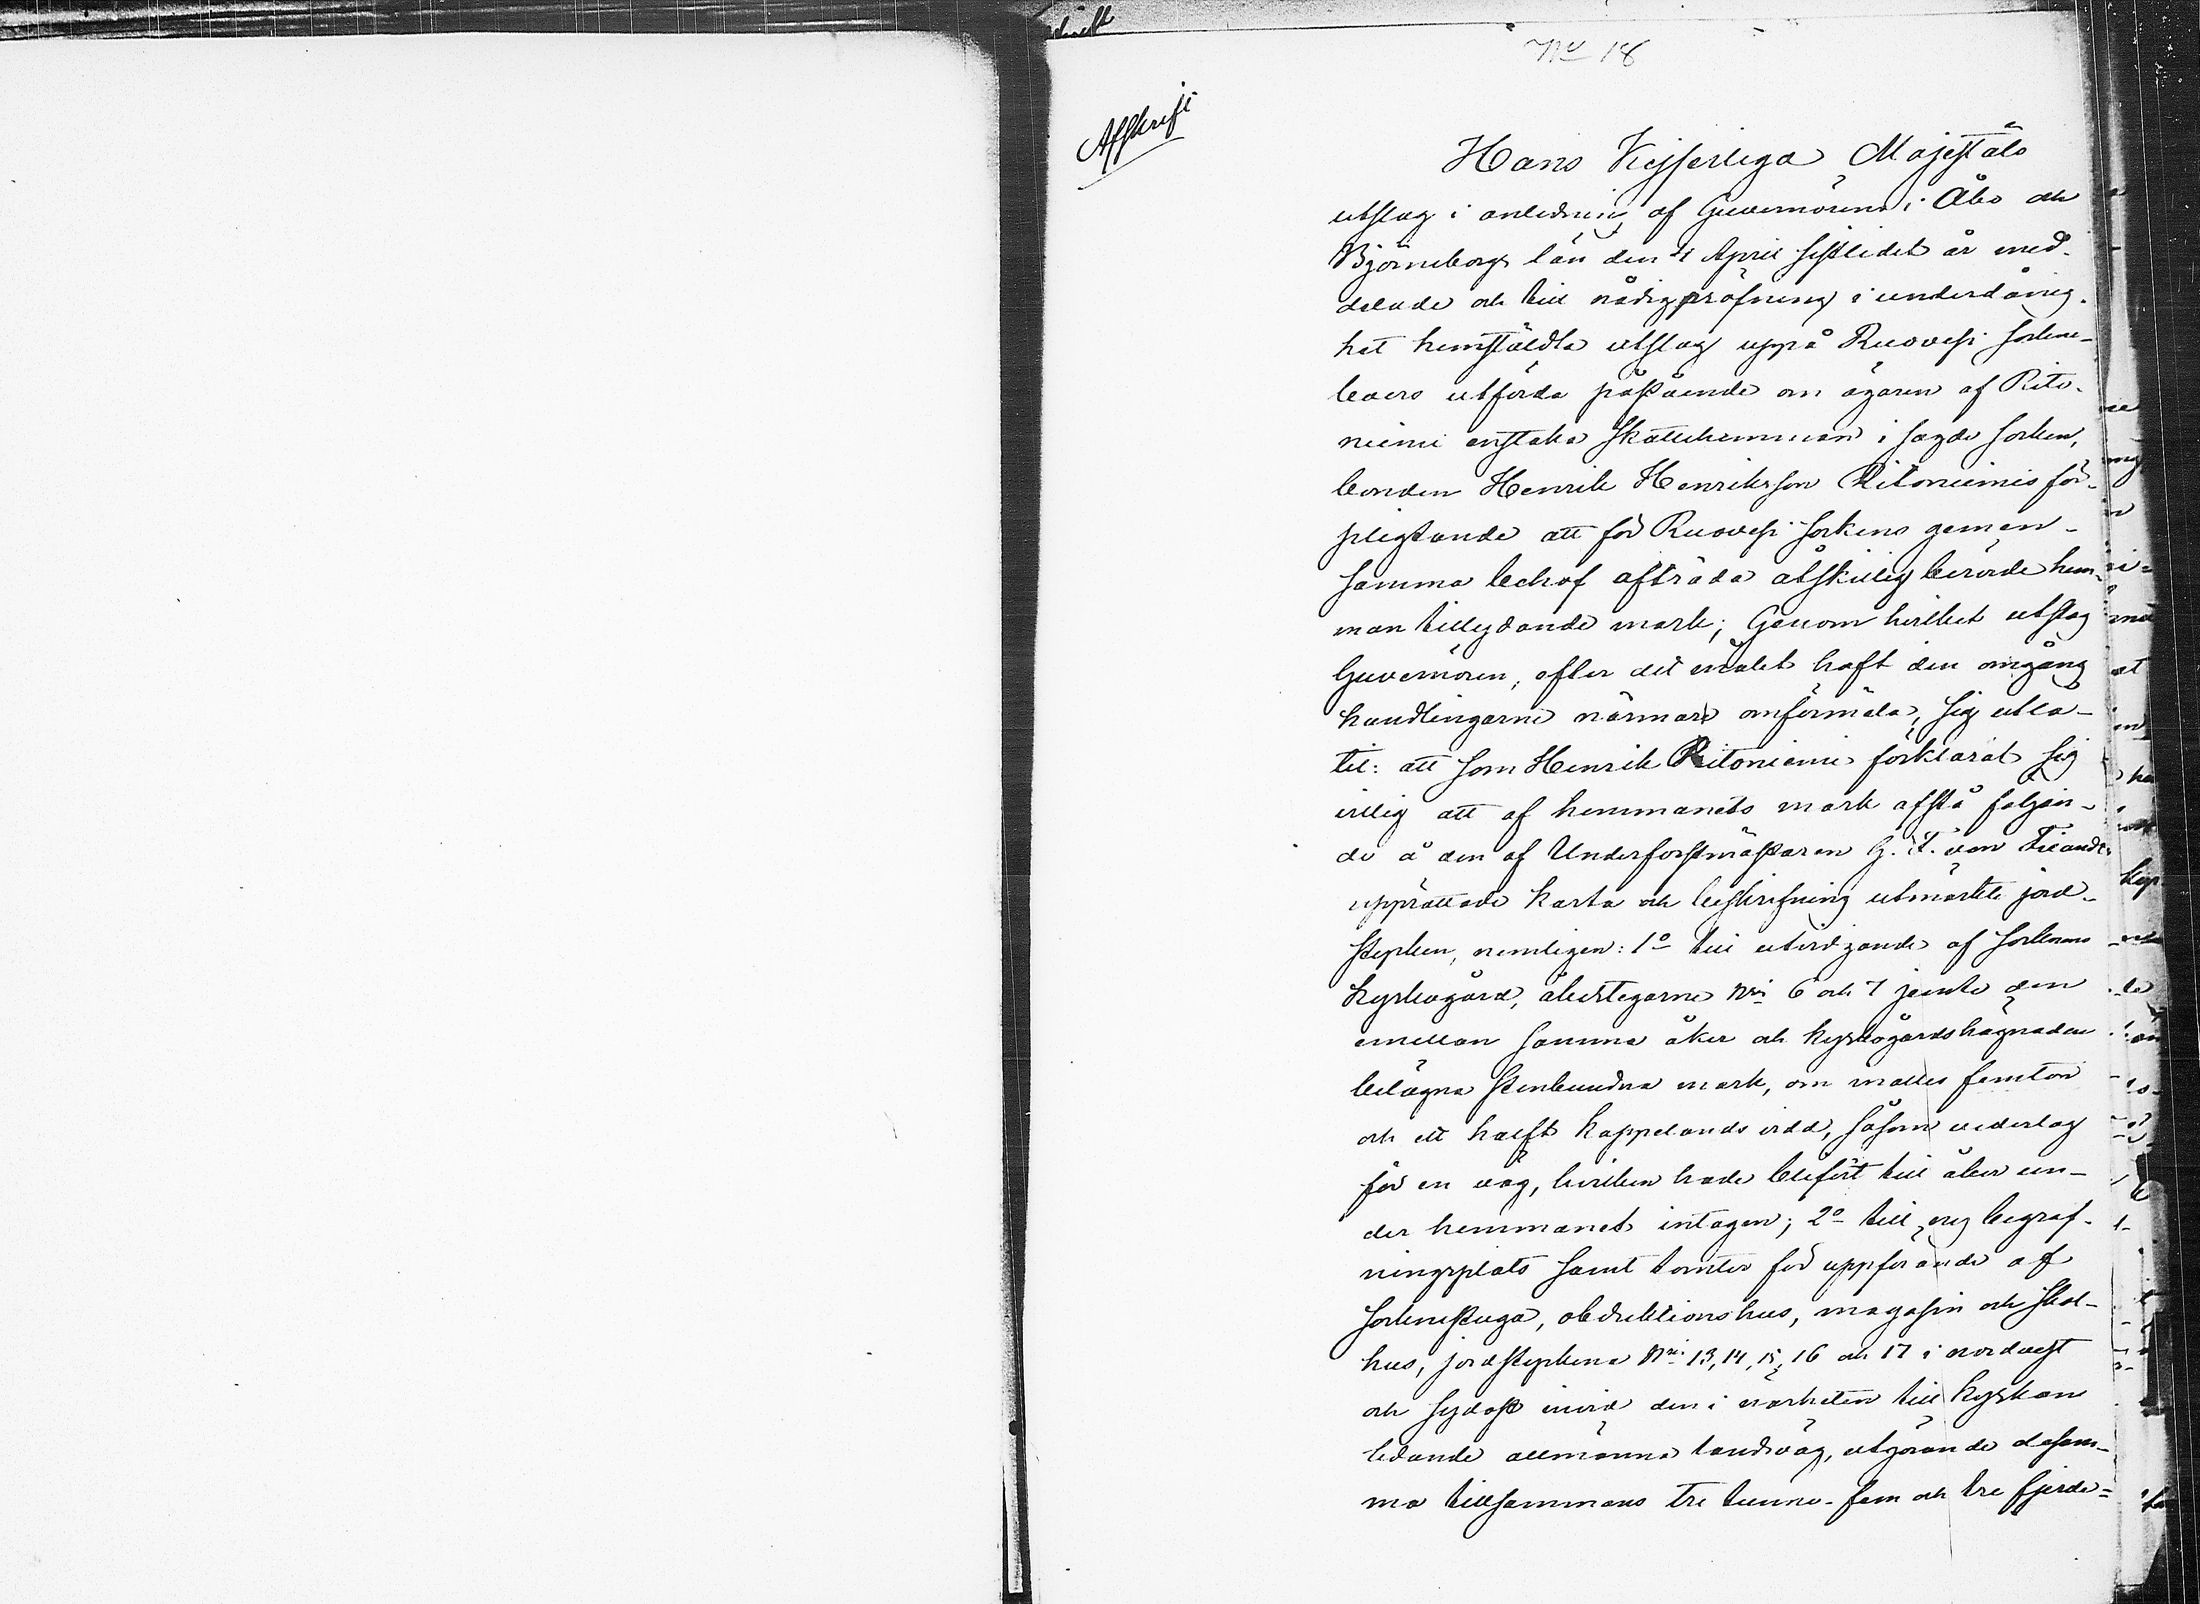 No 18
Afskrift
Hans Kejserliga Majestäts
utslag i anledning af Guvernörens i Åbo och
Björneborgs län den 4 April sistlidet år med-
delade och till nådig pröfning i underdånig-
het hemstälda utslag uppå Ruovesi socken-
boers utförda påstående om ägaren af Rito-
niemi enstaka skattehemman i sagde socken,
bonden Henrik Henriksson Ritoniemis för-
pligtande att för Ruovesi sockens gemen-
samma behof afträda åtskillig berörde hem-
man tillydande mark; Genom hvilket utslag
Guvernören, efter det målet haft den omgång
handlingarne närmare omförmäla, sig utlå-
tit: att som Henrik Ritoniemi förklarat sig
villig att af hemmanets mark afstå följan-
de å den af Underforstmästaren G. T. von
upprättade karta och beskrifning utmärkte jord-
stycken, nemligen: 1o till utvidgande af sockens
kyrkogård, åkertegarne Nris 6 och 7 jemte den
emellan samma åker och kyrkogårdshägnaden
belägna stenbundna mark, om inalles femton
och ett halft kappelands vidd, såsom vederlag
för en väg, hvilken hade blifvit till åker un-
der hemmanet intagen; 2o till ny begraf-
ningsplats samt tomter för uppförande af
sockenstuga, obduktionshus, magasin och skol-
hus, jordstyckena Nris 13, 14, 15, 16 och 17 i nordvest
och sydost invid den i närheten till kyrkan
ledande allmänna landsväg, utgörande desam-
ma tillsammans tre tunne- fem och tre fjerde-